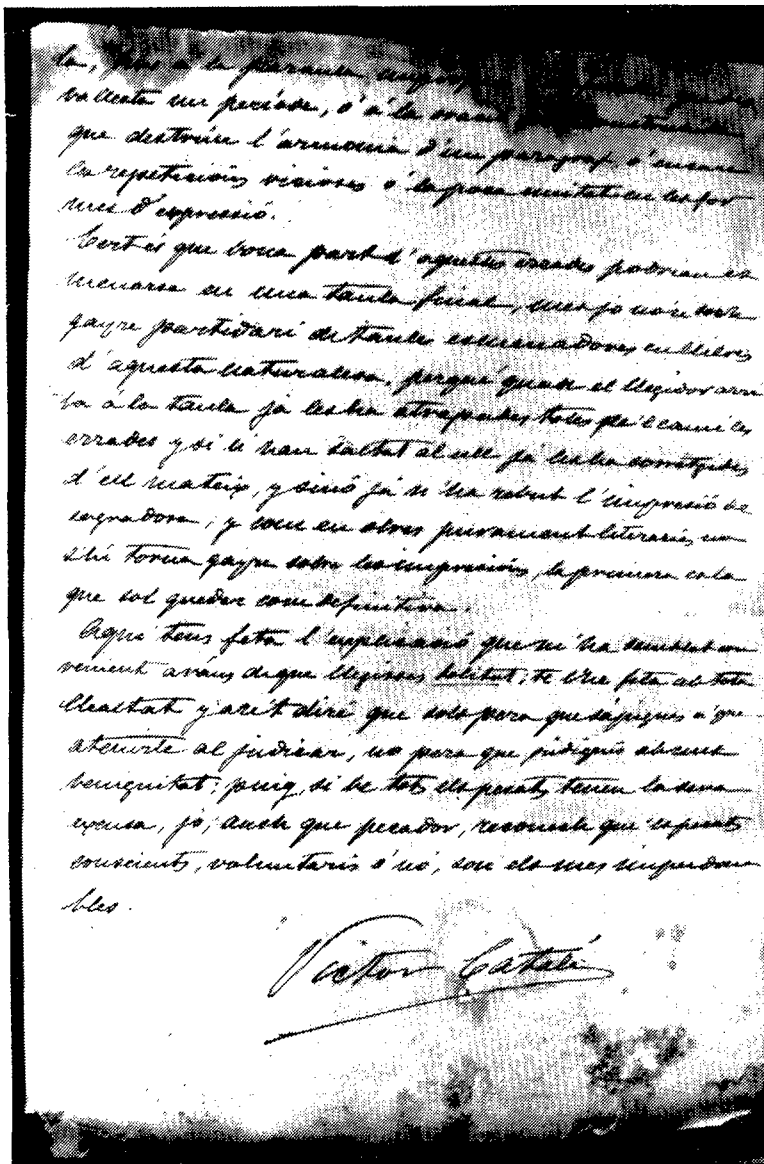 la, sino à la paraula
vallesta un període, ó á la
que destruix l'armonia d'un paragraf ó
les repeticions viciosas ó la poca unitat en les for
mes d'expressió.
Cert és que bona part d'aquestes errades podrían es
menarse en una taula final, mes jo no'n soch
gayre partidari de taules esmenadores en llibres
d'aquesta naturalesa, perquè quan el llegidor arri
ba á la taula ja les ha atrapades totes pe'l camí les
errades y si li han saltat al ull ja les ha corretgides
d'ell mateix, y sinó ja n'ha rebut l'impresió de
sagradosa; y com en obres purament literaries no
s'hi torna gayre sobre les impresións, la primera es la
que sol quedar com definitiva.
Aquí tens feta l'explicació que m'ha semblat con
venient avans de que llegisses Solitut; te l'he feta ab tota
lleáltat y ara't diré que sols pera que sápigues á que
atenirte al judicar, no pera que judiquis ab
benignitat; puig, si be tots els pecats tenen la seva
excusa, jo, anch que pecador, reconech que'ls pecats
conscients, voluntaris ó no, son els mes imperdona
bles.
Víctor Català